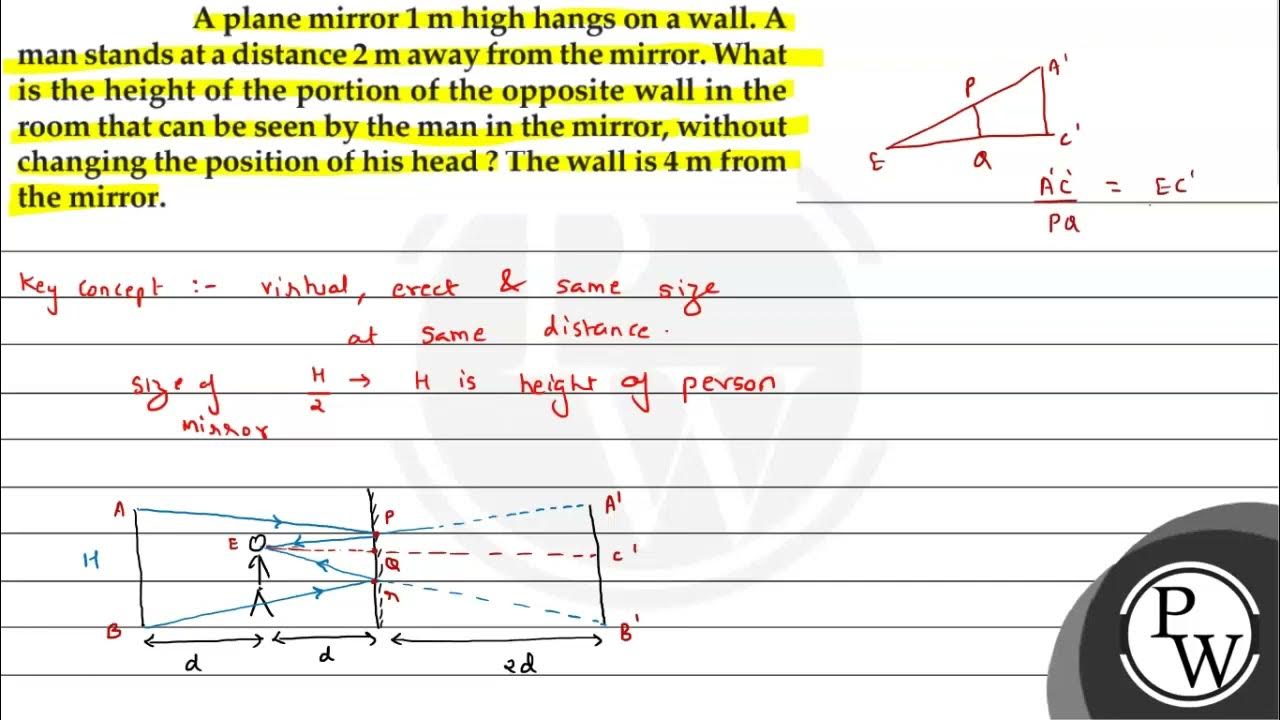 A plane mirror 1 m high hangs on a wall. A
man stands at a distance 2 m away from the mirror. What
is the height of the portion of the opposite wall in the
room that can be seen by the man in the mirror, without
changing the position of his head ? The wall is 4 m from
the mirror.
A'
P
E
Q
C'
A'C' = EC'
PQ
Key concept :- virtual, erect & same size
at same distance.
size of H/2 → H is height of person
mirror
A
P
A'
E
H
Q
C'
r
B
B'
d
d
2d
PW
PW